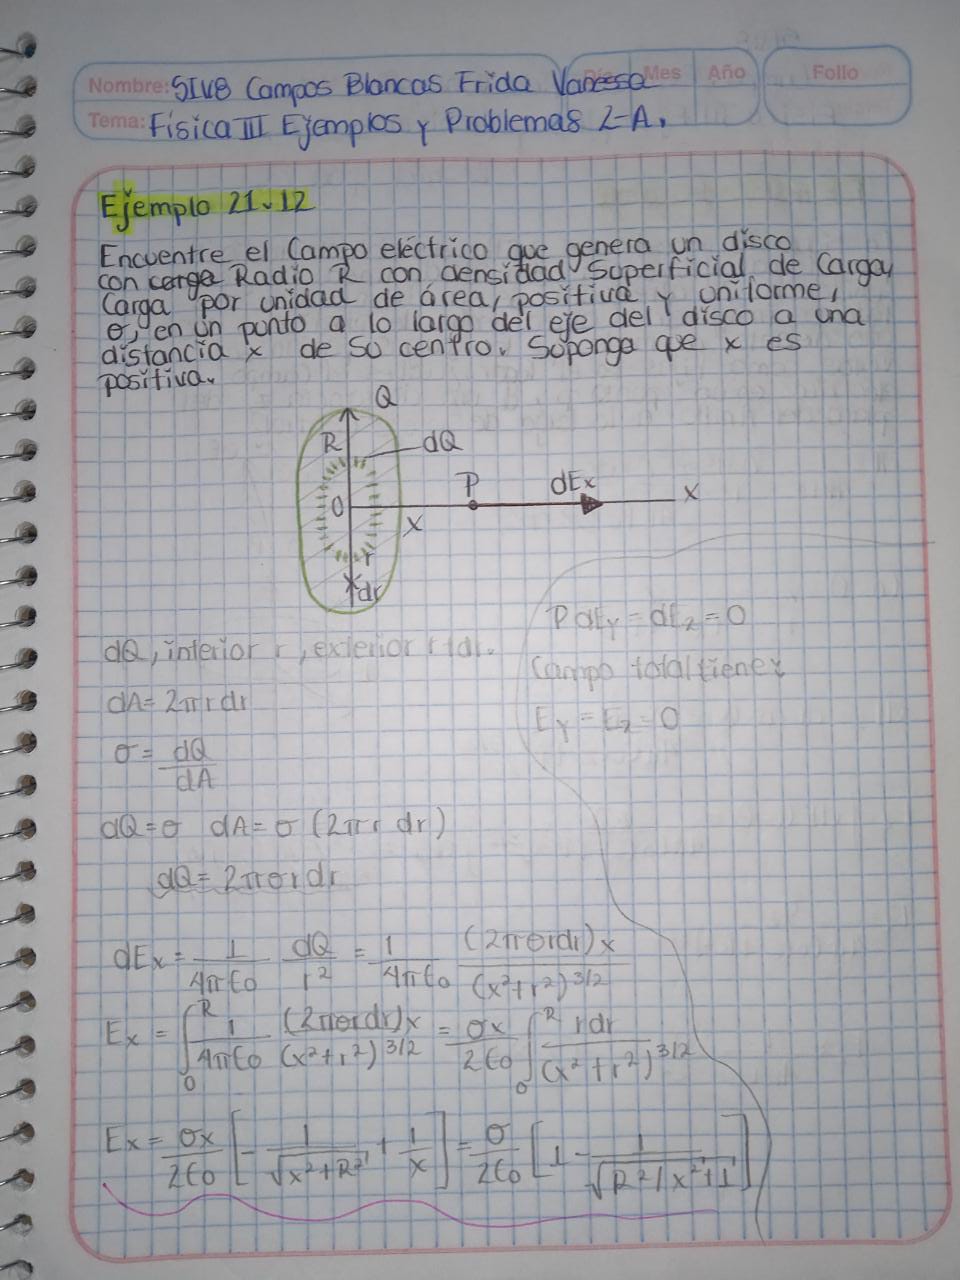 Nombre: SIV8 Campos Blancas Frida Vanessa
Mes Año Folio
Tema: Física III Ejemplos y Problemas 2-A.
Ejemplo 21.12
Encuentre el Campo eléctrico que genera un disco
con carga Radio R con densidad Superficial de Carga,
Carga por unidad de área, positiva y uniforme,
σ, en un punto a lo largo del eje del disco a una
distancia x de so centro. Soponga que x es
positiva.
Q
R dQ
P dEx x
0 x
r
dr
P dEy = dEz = 0
dQ, interior r, exterior r+dr.
Campo total tiene:
dA = 2πrdr
Ey = Ez = 0
σ = dQ/dA
dQ = σ dA = σ (2πr dr)
dQ = 2πσrdr
dEx = 1/4πε0 dQ/r² = 1/4πε0 (2πσrdr)x/(x²+r²)^3/2
Ex = ∫₀ᴿ 1/4πε0 (2πσrdr)x/(x²+r²)^3/2 = σx/2ε0 ∫₀ᴿ rdr/(x²+r²)^3/2
Ex = σx/2ε0 [-1/√x²+R² + 1/x] = σ/2ε0 [1 - 1/√R²/x²+1]